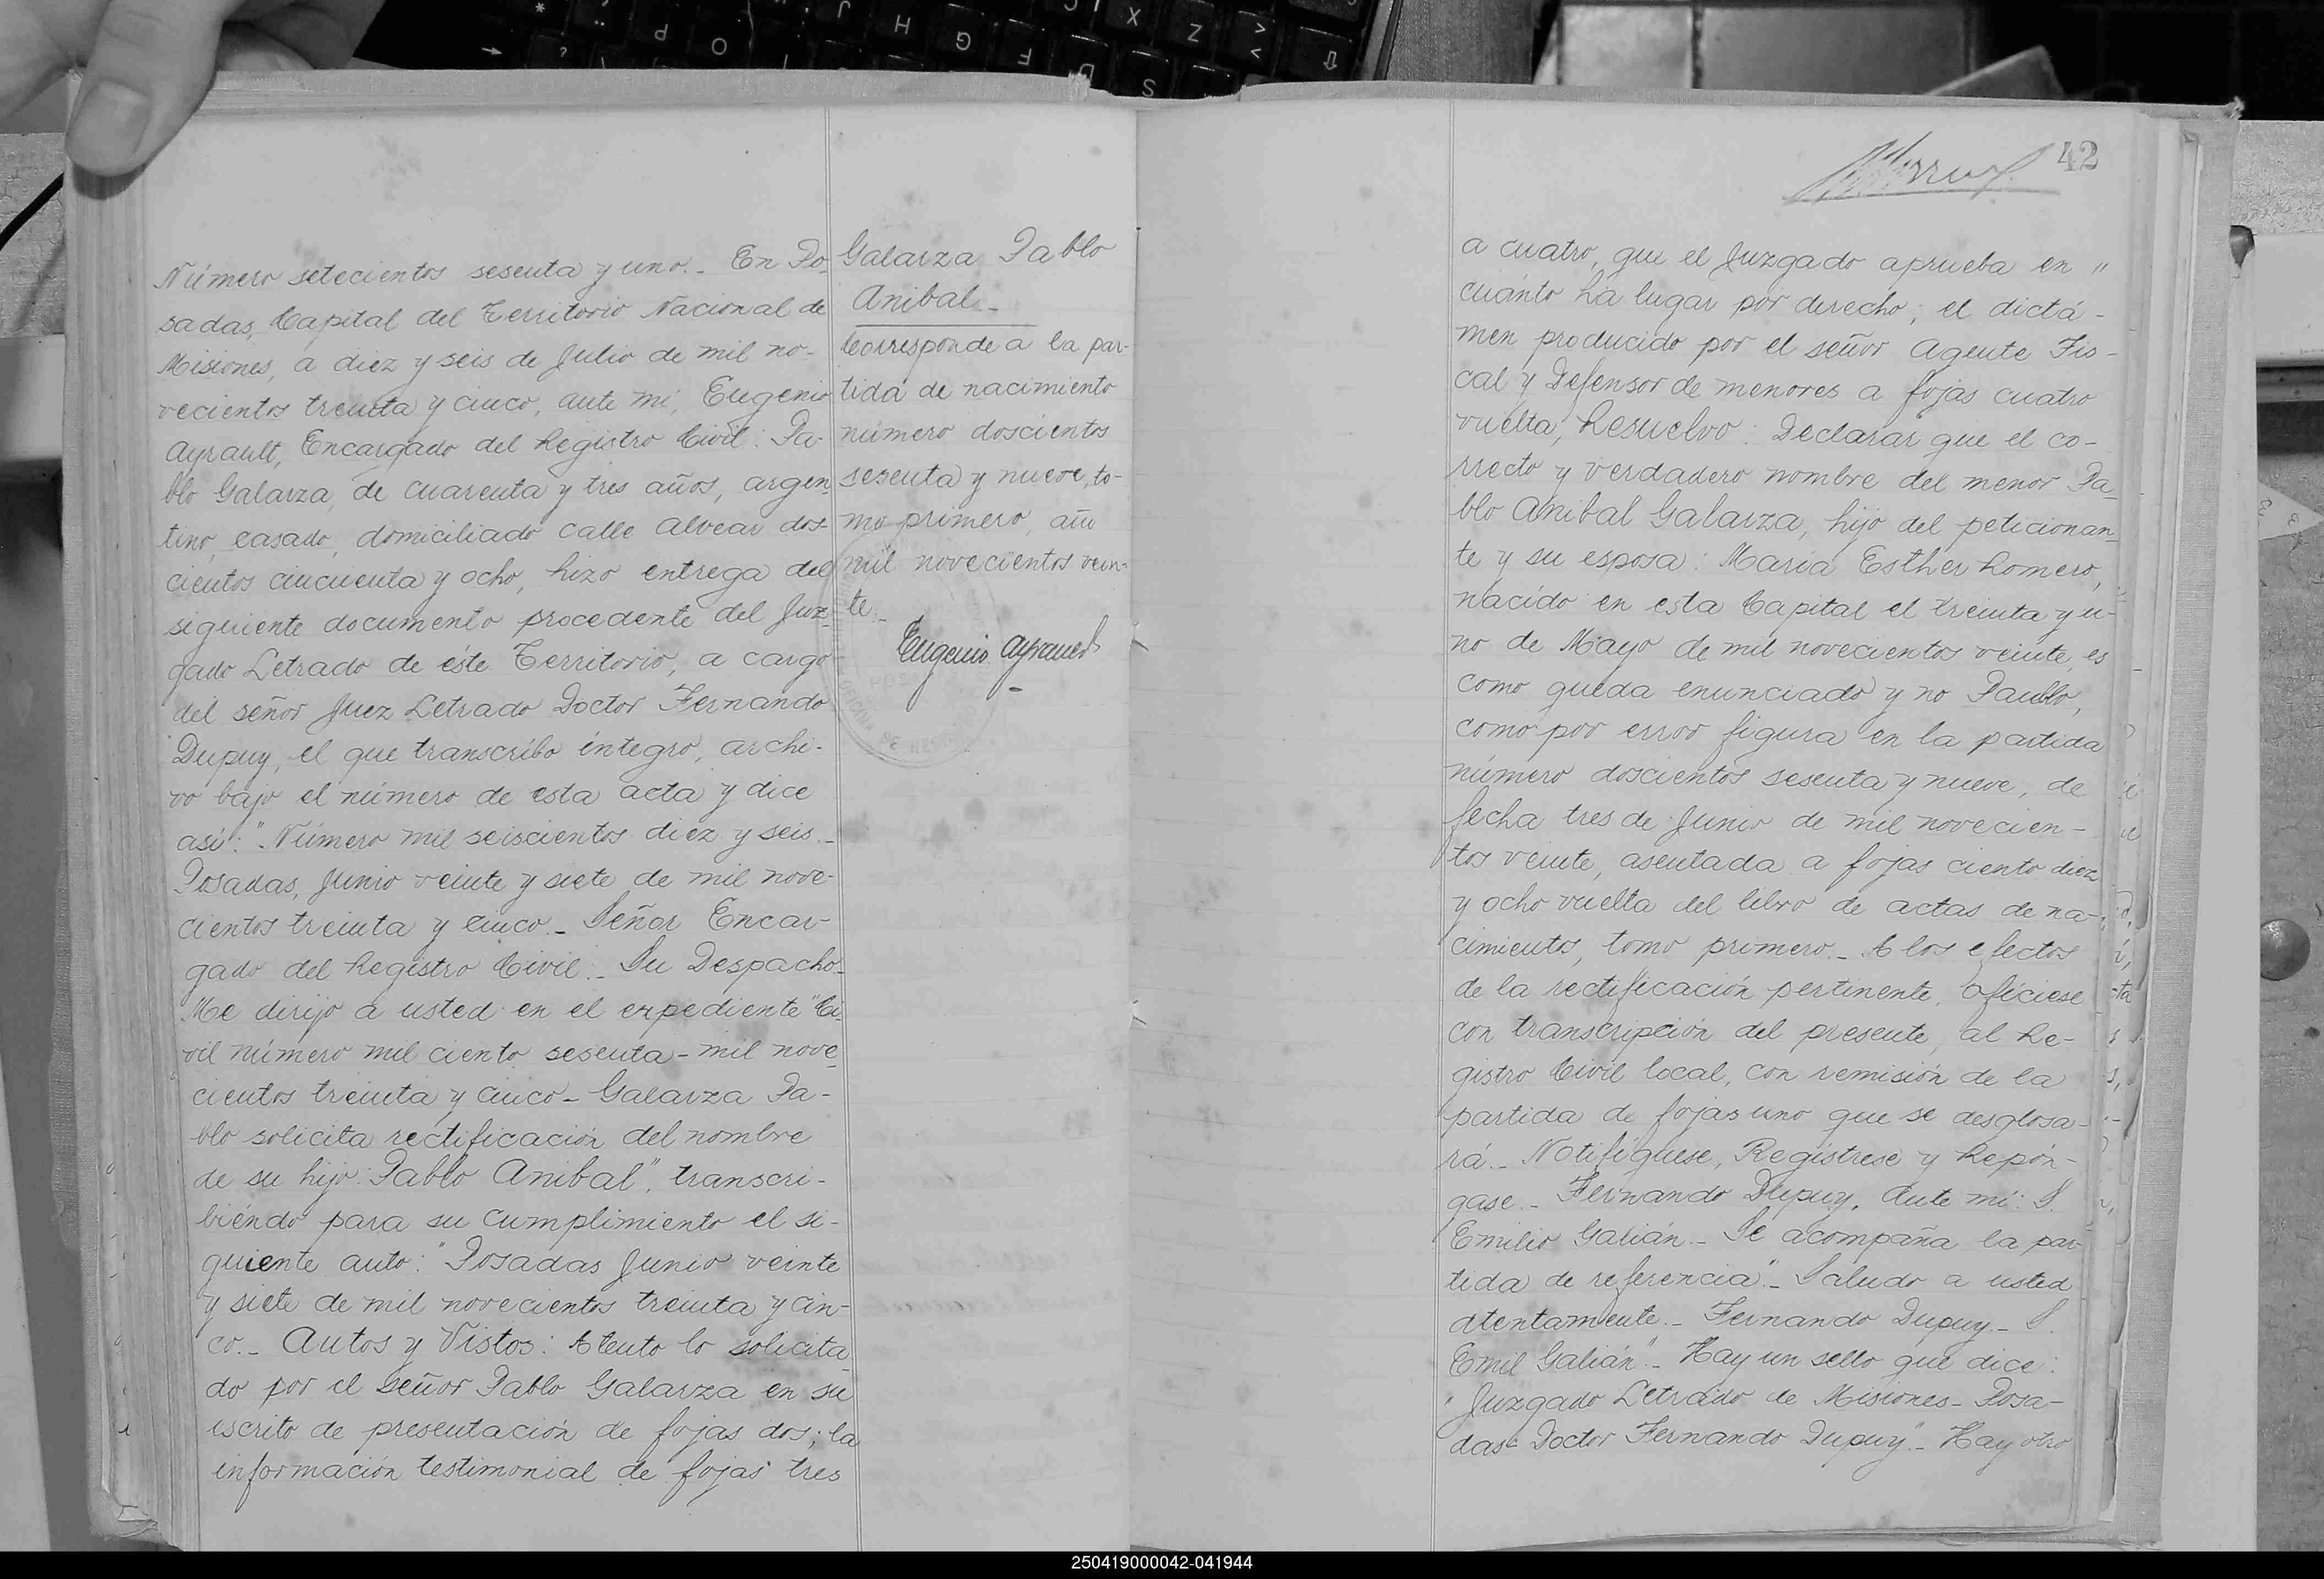 Número setecientos sesenta y uno._ En Po-
sadas, Capital del Territorio Nacional de
Misiones, a diez y seis de Julio de mil no-
vecientos treinta y cinco, ante mi, Eugenio
Ayrault, Encargado del Registro Civil: Pa-
blo Galarza, de cuarenta y tres años, argen-
tino, casado, domiciliado calle Alvear dos-
cientos cincuenta y ocho, hizo entrega del
siguiente documento procedente del Juz-
gado Letrado de éste Territorio, a cargo
del señor Juez Letrado Doctor Fernando
Dupuy, el que transcribo íntegro, archi-
vo bajo el número de esta acta y dice
así: "Número mil seiscientos diez y seis._
Posadas, Junio veinte y siete de mil nove-
cientos treinta y cinco._ Señor Encar-
gado del Registro Civil._ Su Despacho_
Me dirijo a usted en el expediente "Ci-
vil número mil ciento sesenta - mil nove-
cientos treinta y cinco - Galarza Pa-
blo solicita rectificación del nombre
de su hijo: Pablo Anibal", transcri-
biéndo para su cumplimiento el si-
guiente auto: "Posadas Junio veinte
y siete de mil novecientos treinta y cin-
co._ Autos y Vistos: Atento lo solicita-
do por el señor Pablo Galarza en su
escrito de presentación de fojas dos; la
información testimonial de fojas tres
Galarza Pablo
Anibal_
Corresponde a la par-
tida de nacimiento
número doscientos
sesenta y nueve, to-
mo primero, año
mil novecientos vein-
te._
Eugenio Ayrault
42
a cuatro, que el Juzgado aprueba en "
cuánto ha lugar por derecho; el dictá-
men producido por el señor Agente Fis-
cal y Defensor de menores a fojas cuatro
vuelta, Resuelvo: Declarar que el co-
rrecto y verdadero nombre del menor Pa-
blo Anibal Galarza, hijo del peticionan-
te y su esposa: María Esther Romero,
nacido en esta Capital el treinta y u-
no de Mayo de mil novecientos veinte, es
como queda enunciado y no Paublo,
como por error figura en la partida
número doscientos sesenta y nueve, de
fecha tres de Junio de mil novecien-
tos veinte, asentada a fojas ciento diez
y ocho vuelta del libro de actas de na-
cimientos, tomo primero._ A los efectos
de la rectificación pertinente, ofíciese
con transcripción del presente, al Re-
gistro Civil local, con remisión de la
partida de fojas uno que se desglosa-
rá._ Notifíquese, Regístrese y Repón-
gase._ Fernando Dupuy. Ante mí: S.
Emilio Galián._ Se acompaña la par-
tida de referencia"._ Saludo a usted
atentamente._ Fernando Dupuy._ S.
Emil Galián"._ Hay un sello que dice:
"Juzgado Letrado de Misiones_ Posa-
das_ Doctor Fernando Dupuy"._ Hay otro
250419000042-041944